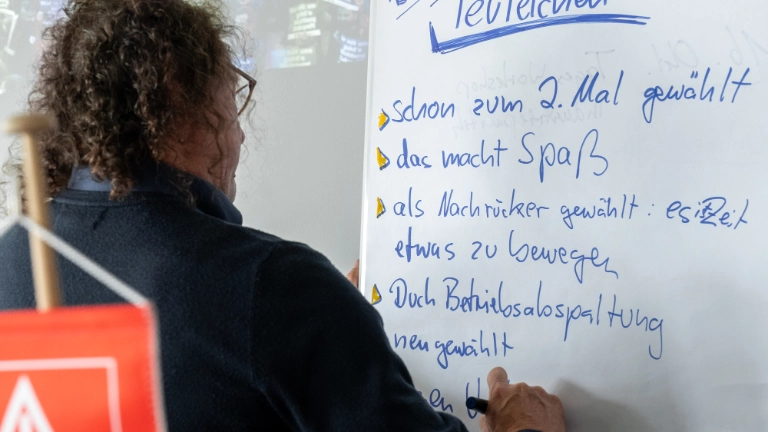 schon zum 2. Mal gewählt
das macht Spaß
als Nachrücker gewählt: es ist Zeit
etwas zu bewegen
Duch Betriebsabspaltung
neu gewählt